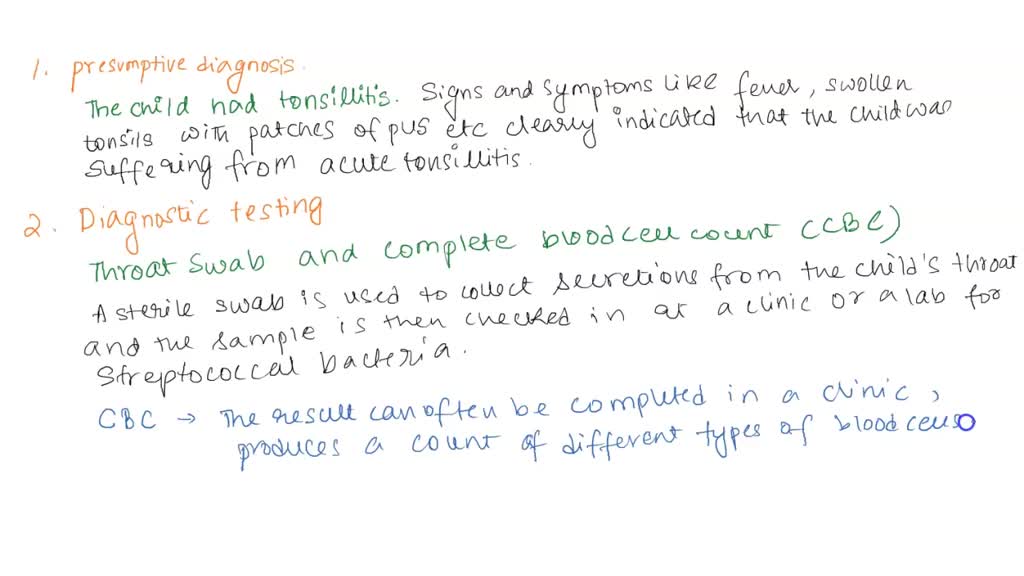 1. presumptive diagnosis.
The child had tonsillitis. Signs and symptoms like fever, swollen
tonsils with patches of pus etc clearly indicated that the child was
suffering from acute tonsillitis.
2. Diagnostic testing
Throat Swab and complete blood cell count (CBC)
A sterile swab is used to collect secretions from the child's throat
and the sample is then checked in at a clinic or a lab for
Streptococcal bacteria.
CBC → The result can often be completed in a clinic,
produces a count of different types of blood cells